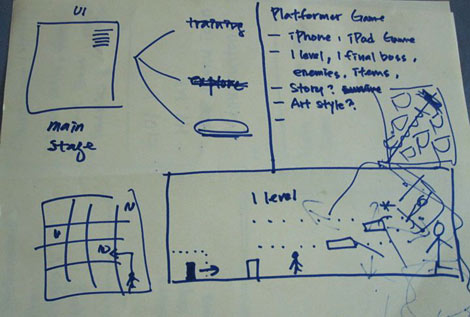 UI
training
explore
main
stage
Platformer Game
- iPhone, iPad Game
- 1 level, 1 final boss,
enemies, items,
- Story?
- Art style?
-
1 level